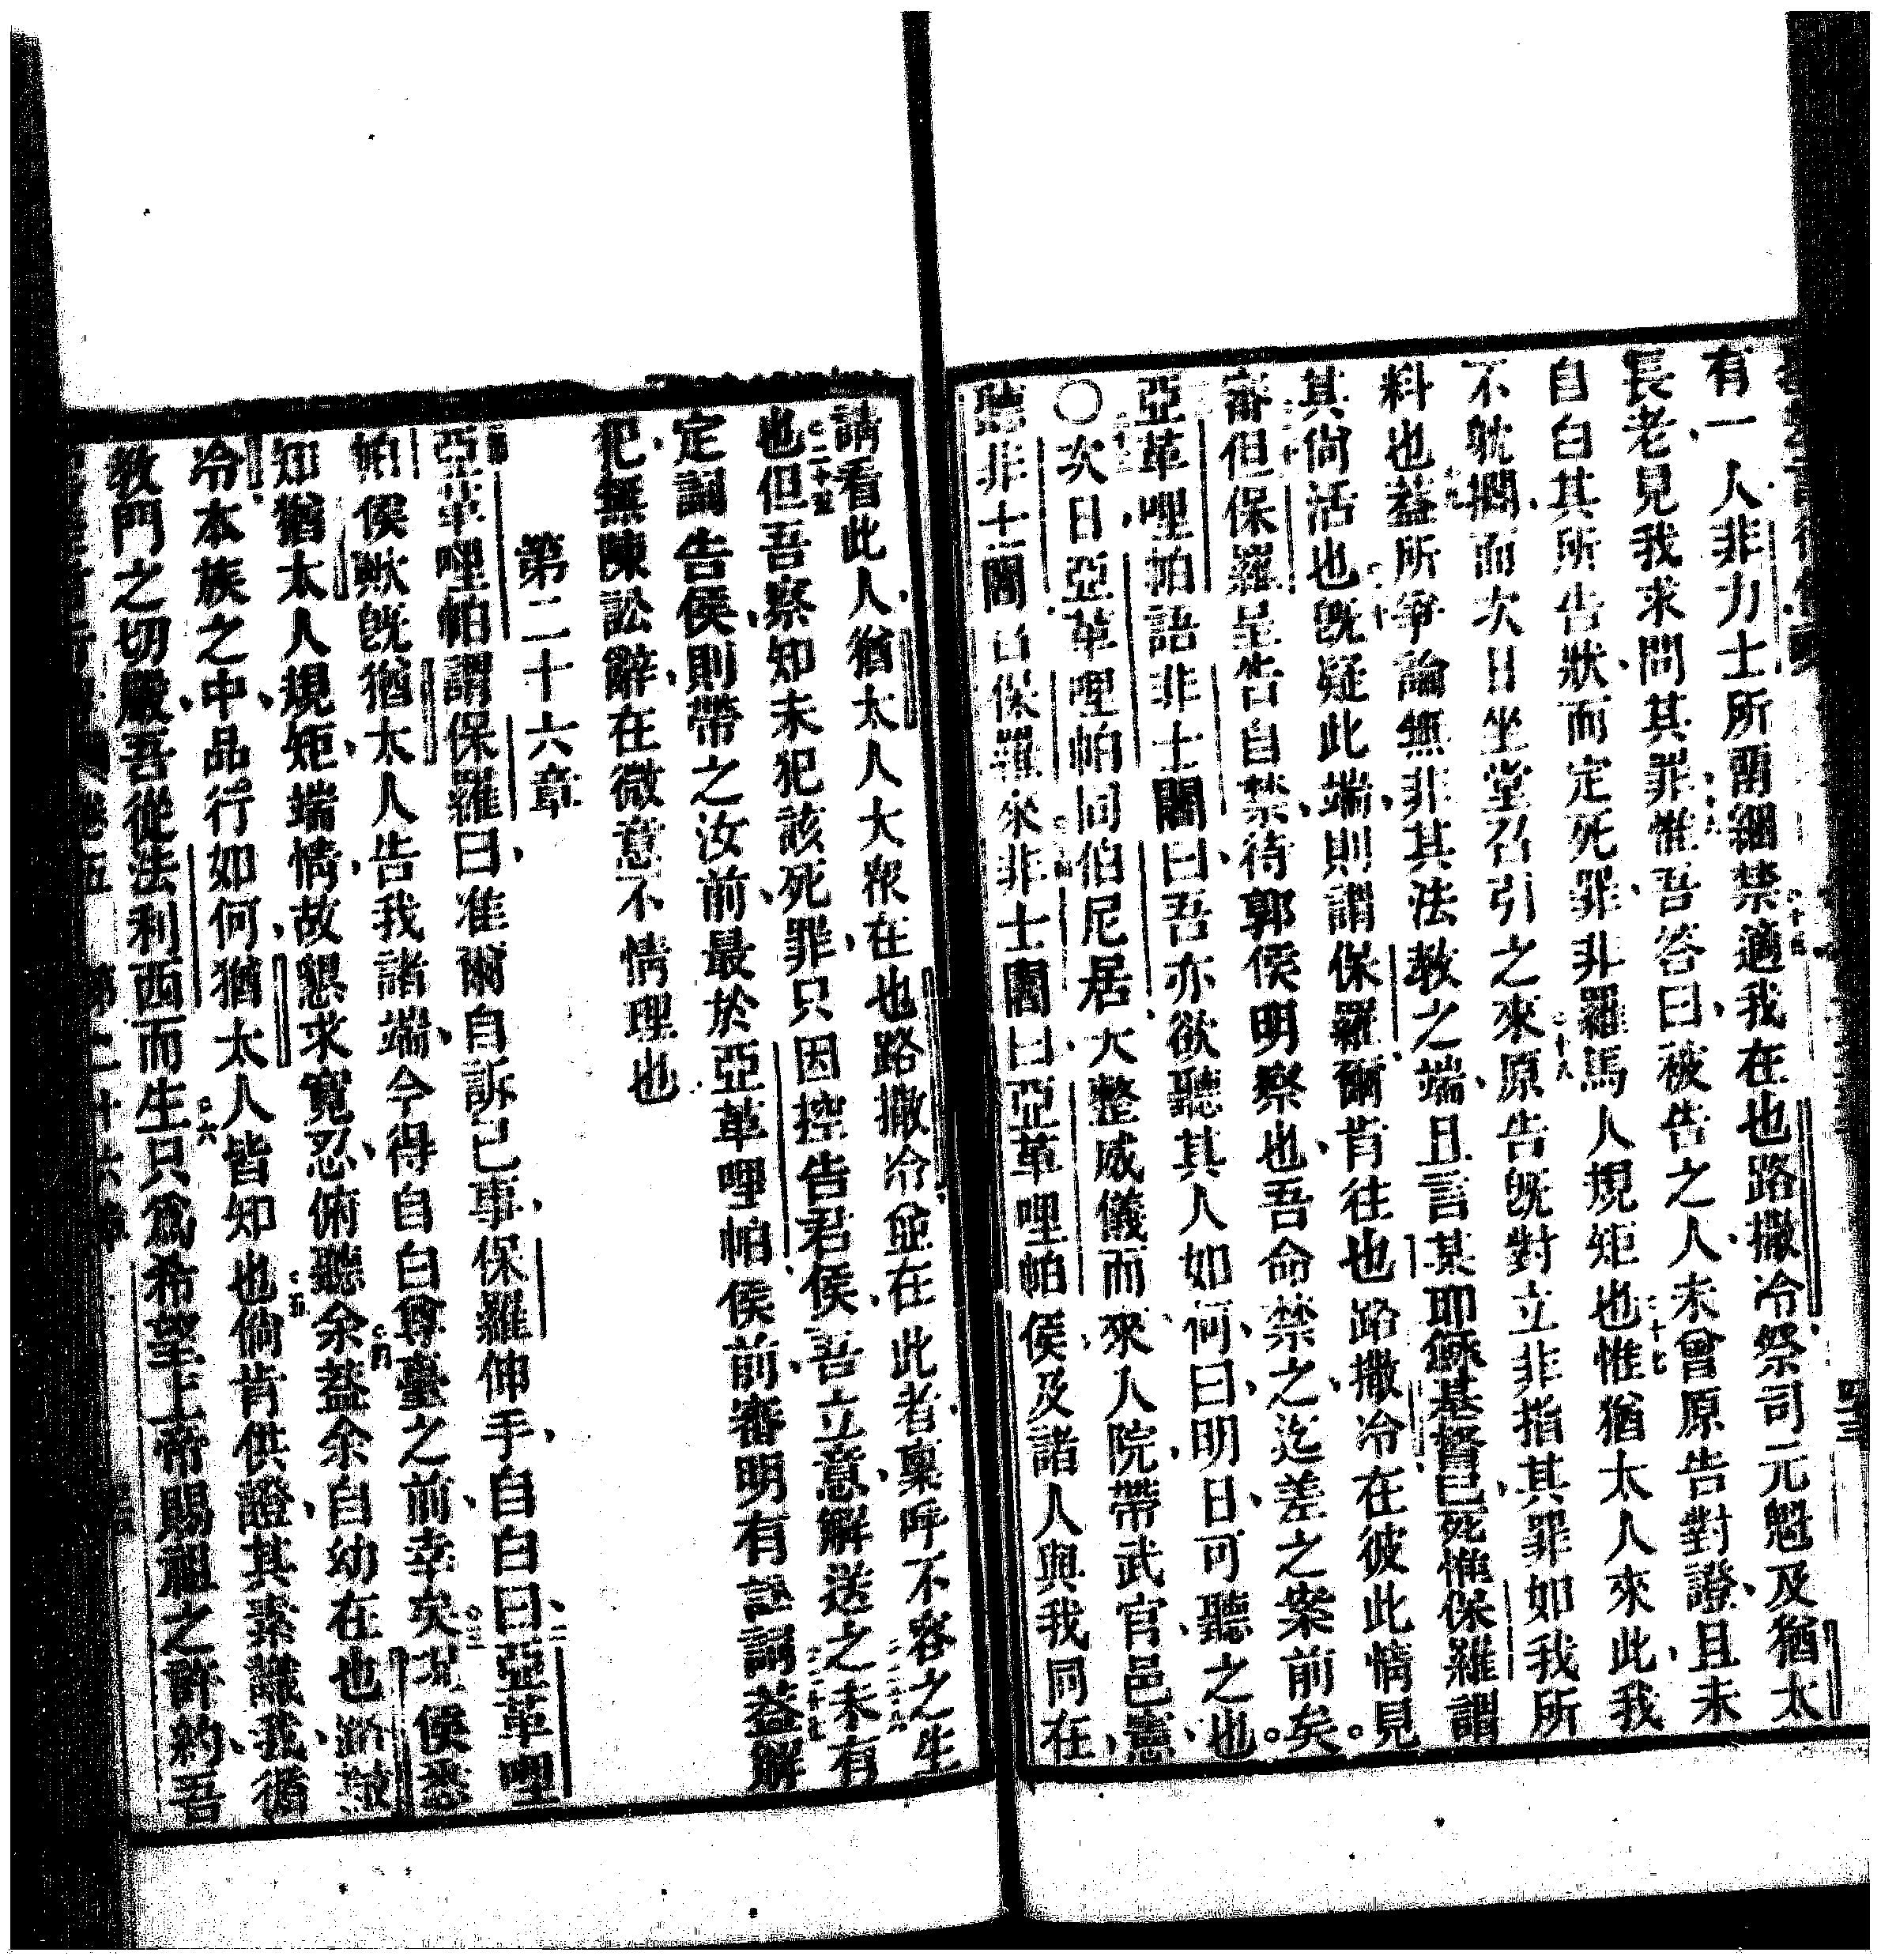 有一人非力士所爾綑禁適我在也路撒冷祭司元魁及猶太
長老見我求問其罪惟吾答曰被告之人未曾原告對證且未
自白其所告狀而定死罪非羅馬人規矩也惟猶太人來此我
不躭擱而次日坐堂召引之來原告既對立非指其罪如我所
料也蓋所爭論無非其法教之端且言某耶穌基督已死惟保羅謂
其尚活也既疑此端則謂保羅爾肯往也路撒冷在彼此情見
審但保羅呈告自禁待郭侯明察也吾命禁之迄差之案前矣
亞革哩帕語非士闍曰吾亦欲聽其人如何曰明日可聽之也
○次日亞革哩帕同伯尼居大整威儀而來入院帶武官邑憲
聽非士闍召保羅來非士闍曰亞革哩帕侯及諸人與我同在
請看此人猶太人大衆在也路撒冷並在此者稟呼不容之生
也但吾察知未犯該死罪只因控告君侯吾立意解送之未有
定詞告侯則帶之汝前最於亞革哩帕侯前審明有詞蓋解
犯無陳訟辭在微意不情理也
第二十六章
亞革哩帕謂保羅曰准爾自訴己事保羅伸手自白曰亞革哩
帕侯歟既猶太人告我諸端今得自白尊臺之前幸矣況侯悉
知猶太人規矩端情故懇求寬忍俯聽余蓋余自幼在也路撒
冷本族之中品行如何猶太人皆知也倘肯供證其素識我循
教門之切嚴吾從法利西而生只為希望上帝賜祖之許約吾
卷五 第二十六章